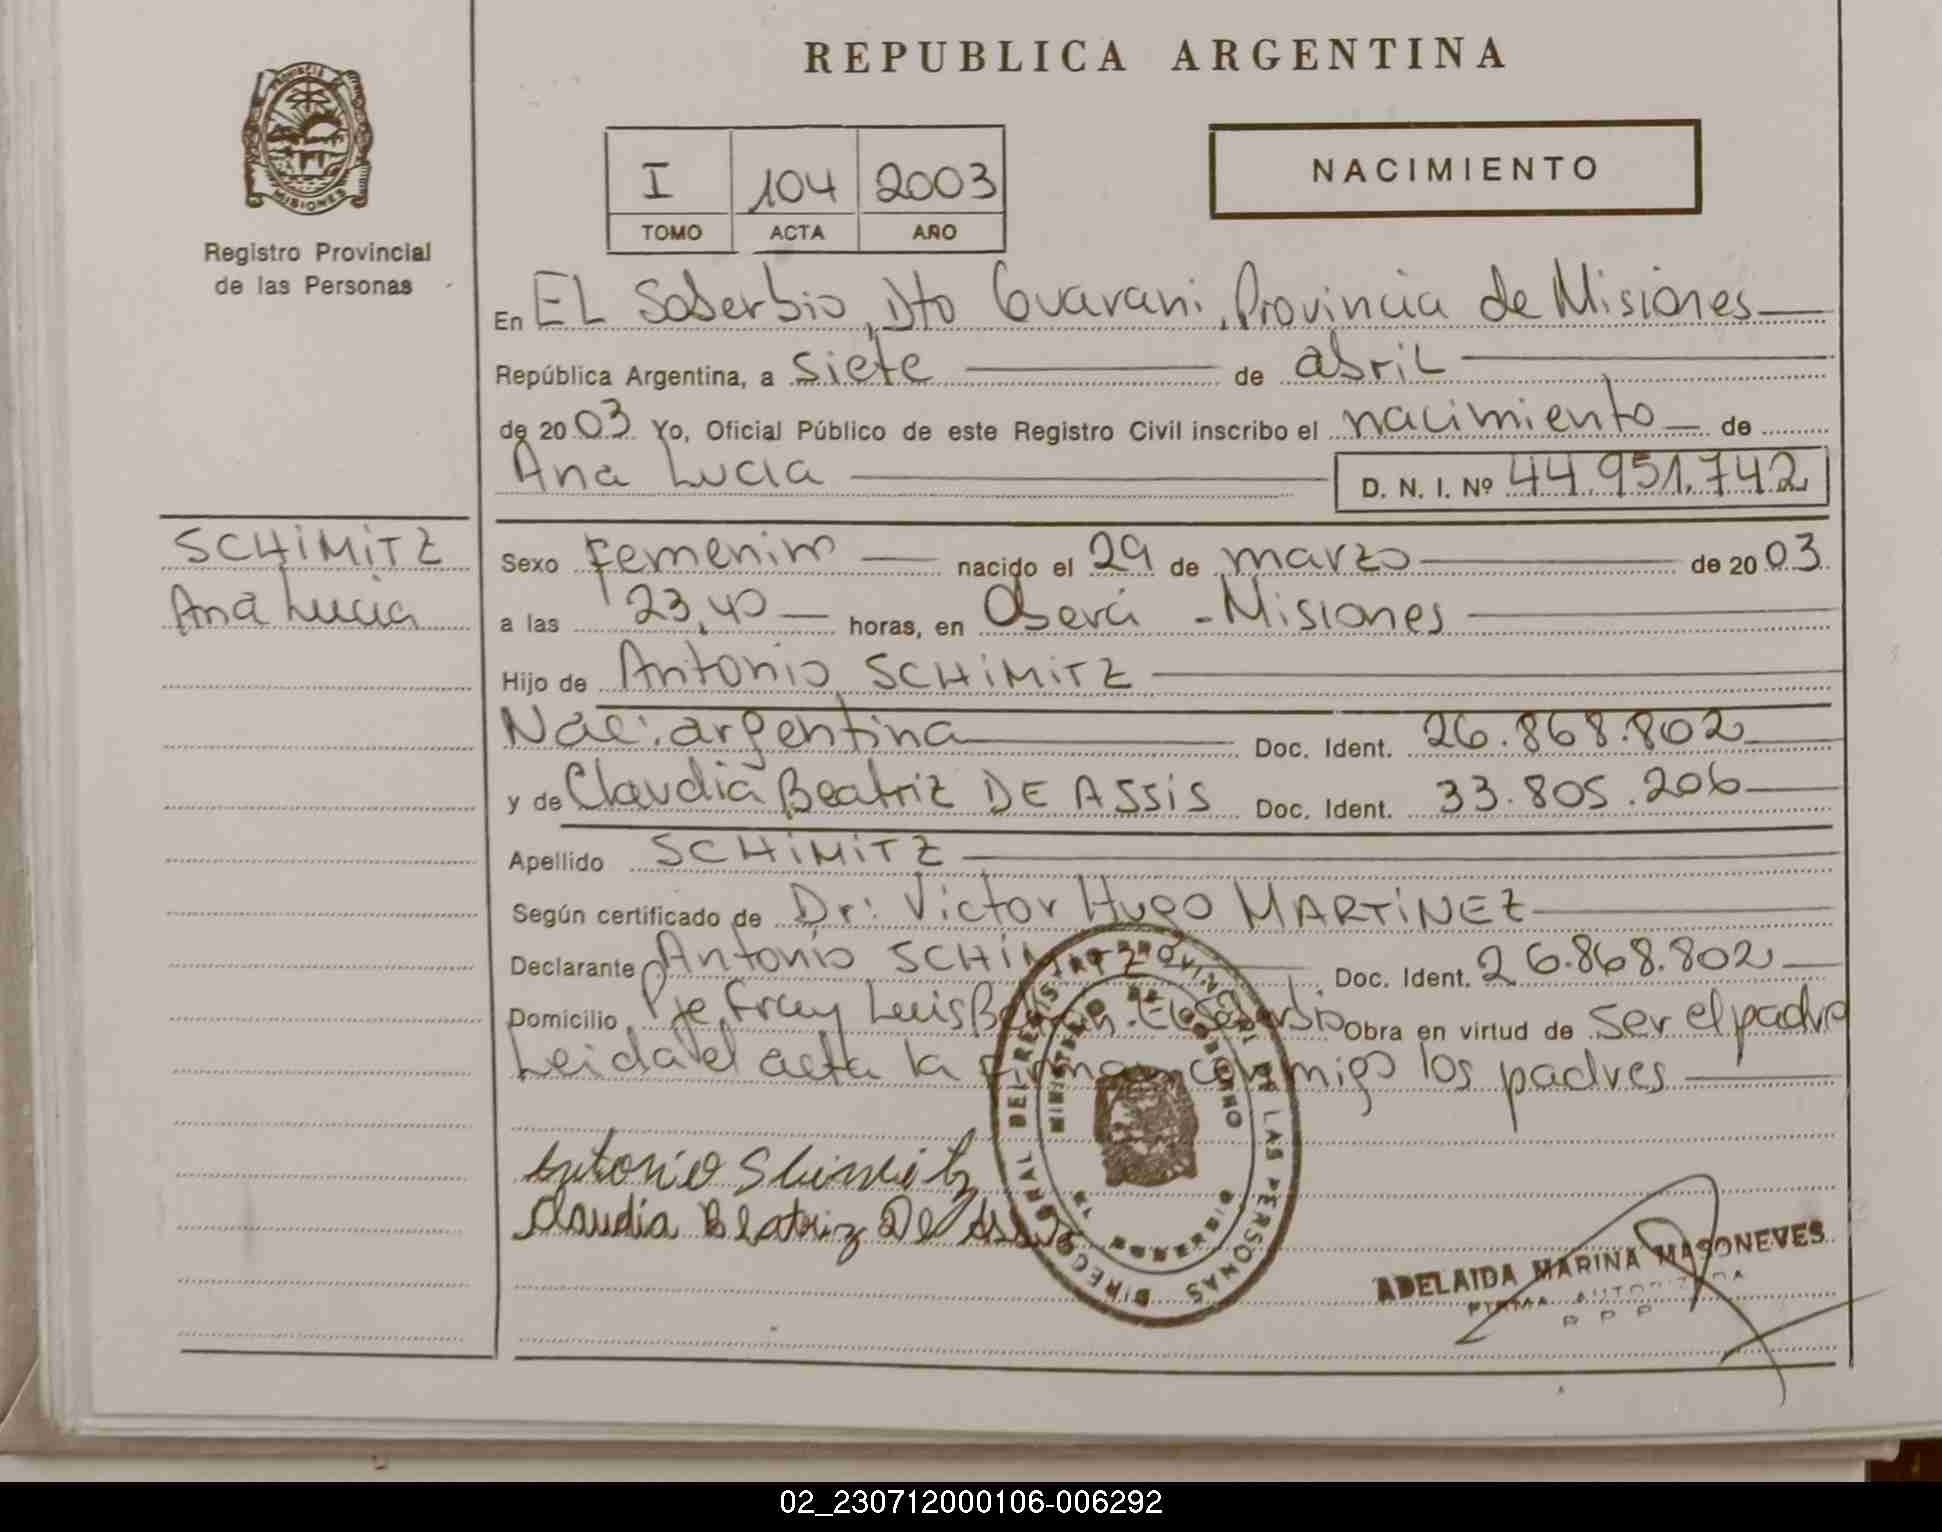 REPUBLICA ARGENTINA
NACIMIENTO
I 104 2003
TOMO ACTA AÑO
PROVINCIA DE
MISIONES
Registro Provincial
de las Personas
En EL Soberbio, Dto Guarani, Provincia de Misiones
República Argentina, a siete de abril
de 2003 Yo, Oficial Público de este Registro Civil inscribo el nacimiento de
Ana Lucia D. N. I. Nº 44.951.742
SCHiMiTZ
Ana Lucia
Sexo Femenino nacido el 29 de marzo de 2003
a las 23,40 horas, en Oberá - Misiones
Hijo de Antonio SCHiMiTZ
Nac: argentina Doc. Ident. 26.868.802
y de Claudia Beatriz DE ASSiS Doc. Ident. 33.805.206
Apellido SCHiMiTZ
Según certificado de Dr: Victor Hugo MARTiNEZ
Declarante Antonio SCHiMiTZ Doc. Ident. 26.868.802
Domicilio Pje Fray Luis Beltrán. El Soberbio Obra en virtud de ser el padre
Leida el acta la firman conmigo los padres
Antonio Shimitz
Claudia Beatriz De Assis
DIRECC. GRAL DEL REGIST. PROVINCIAL DE LAS PERSONAS
MINISTERIO DE GOBIERNO
MISIONES
ADELAIDA MARINA MASONEVES
FIRMA AUTORIZADA
R P P
02_230712000106-006292